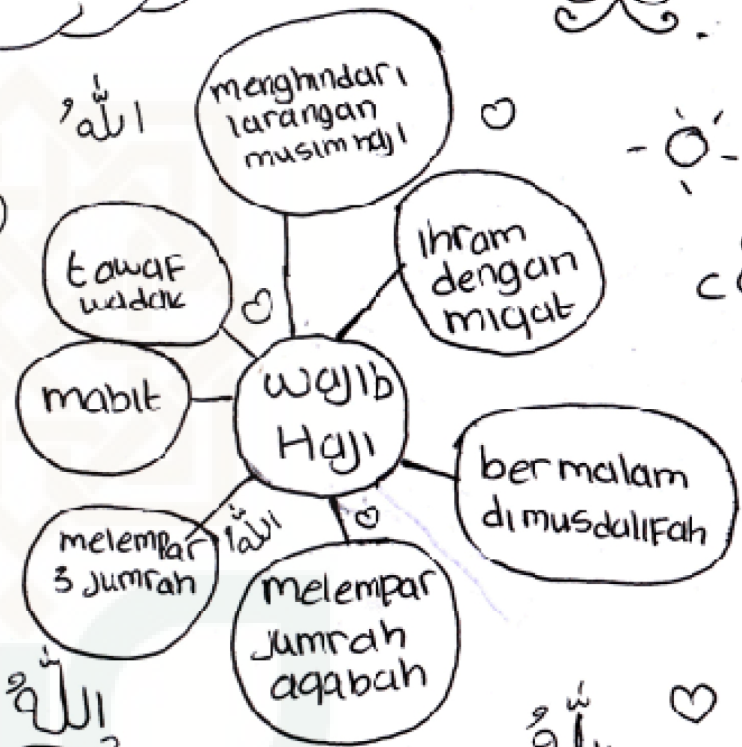 الله
menghindari
larangan
musim haji
Ihram
dengan
miqat
tawaf
wadak
mabit
wajib
Haji
bermalam
dimusdalifah
melempar
3 Jumrah
الله
melempar
Jumrah
aqabah
الله
الله